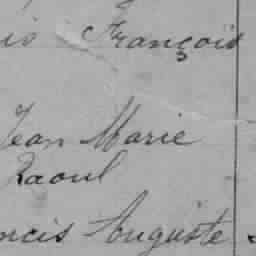 is François
Jean Marie
Raoul
ncis Auguste